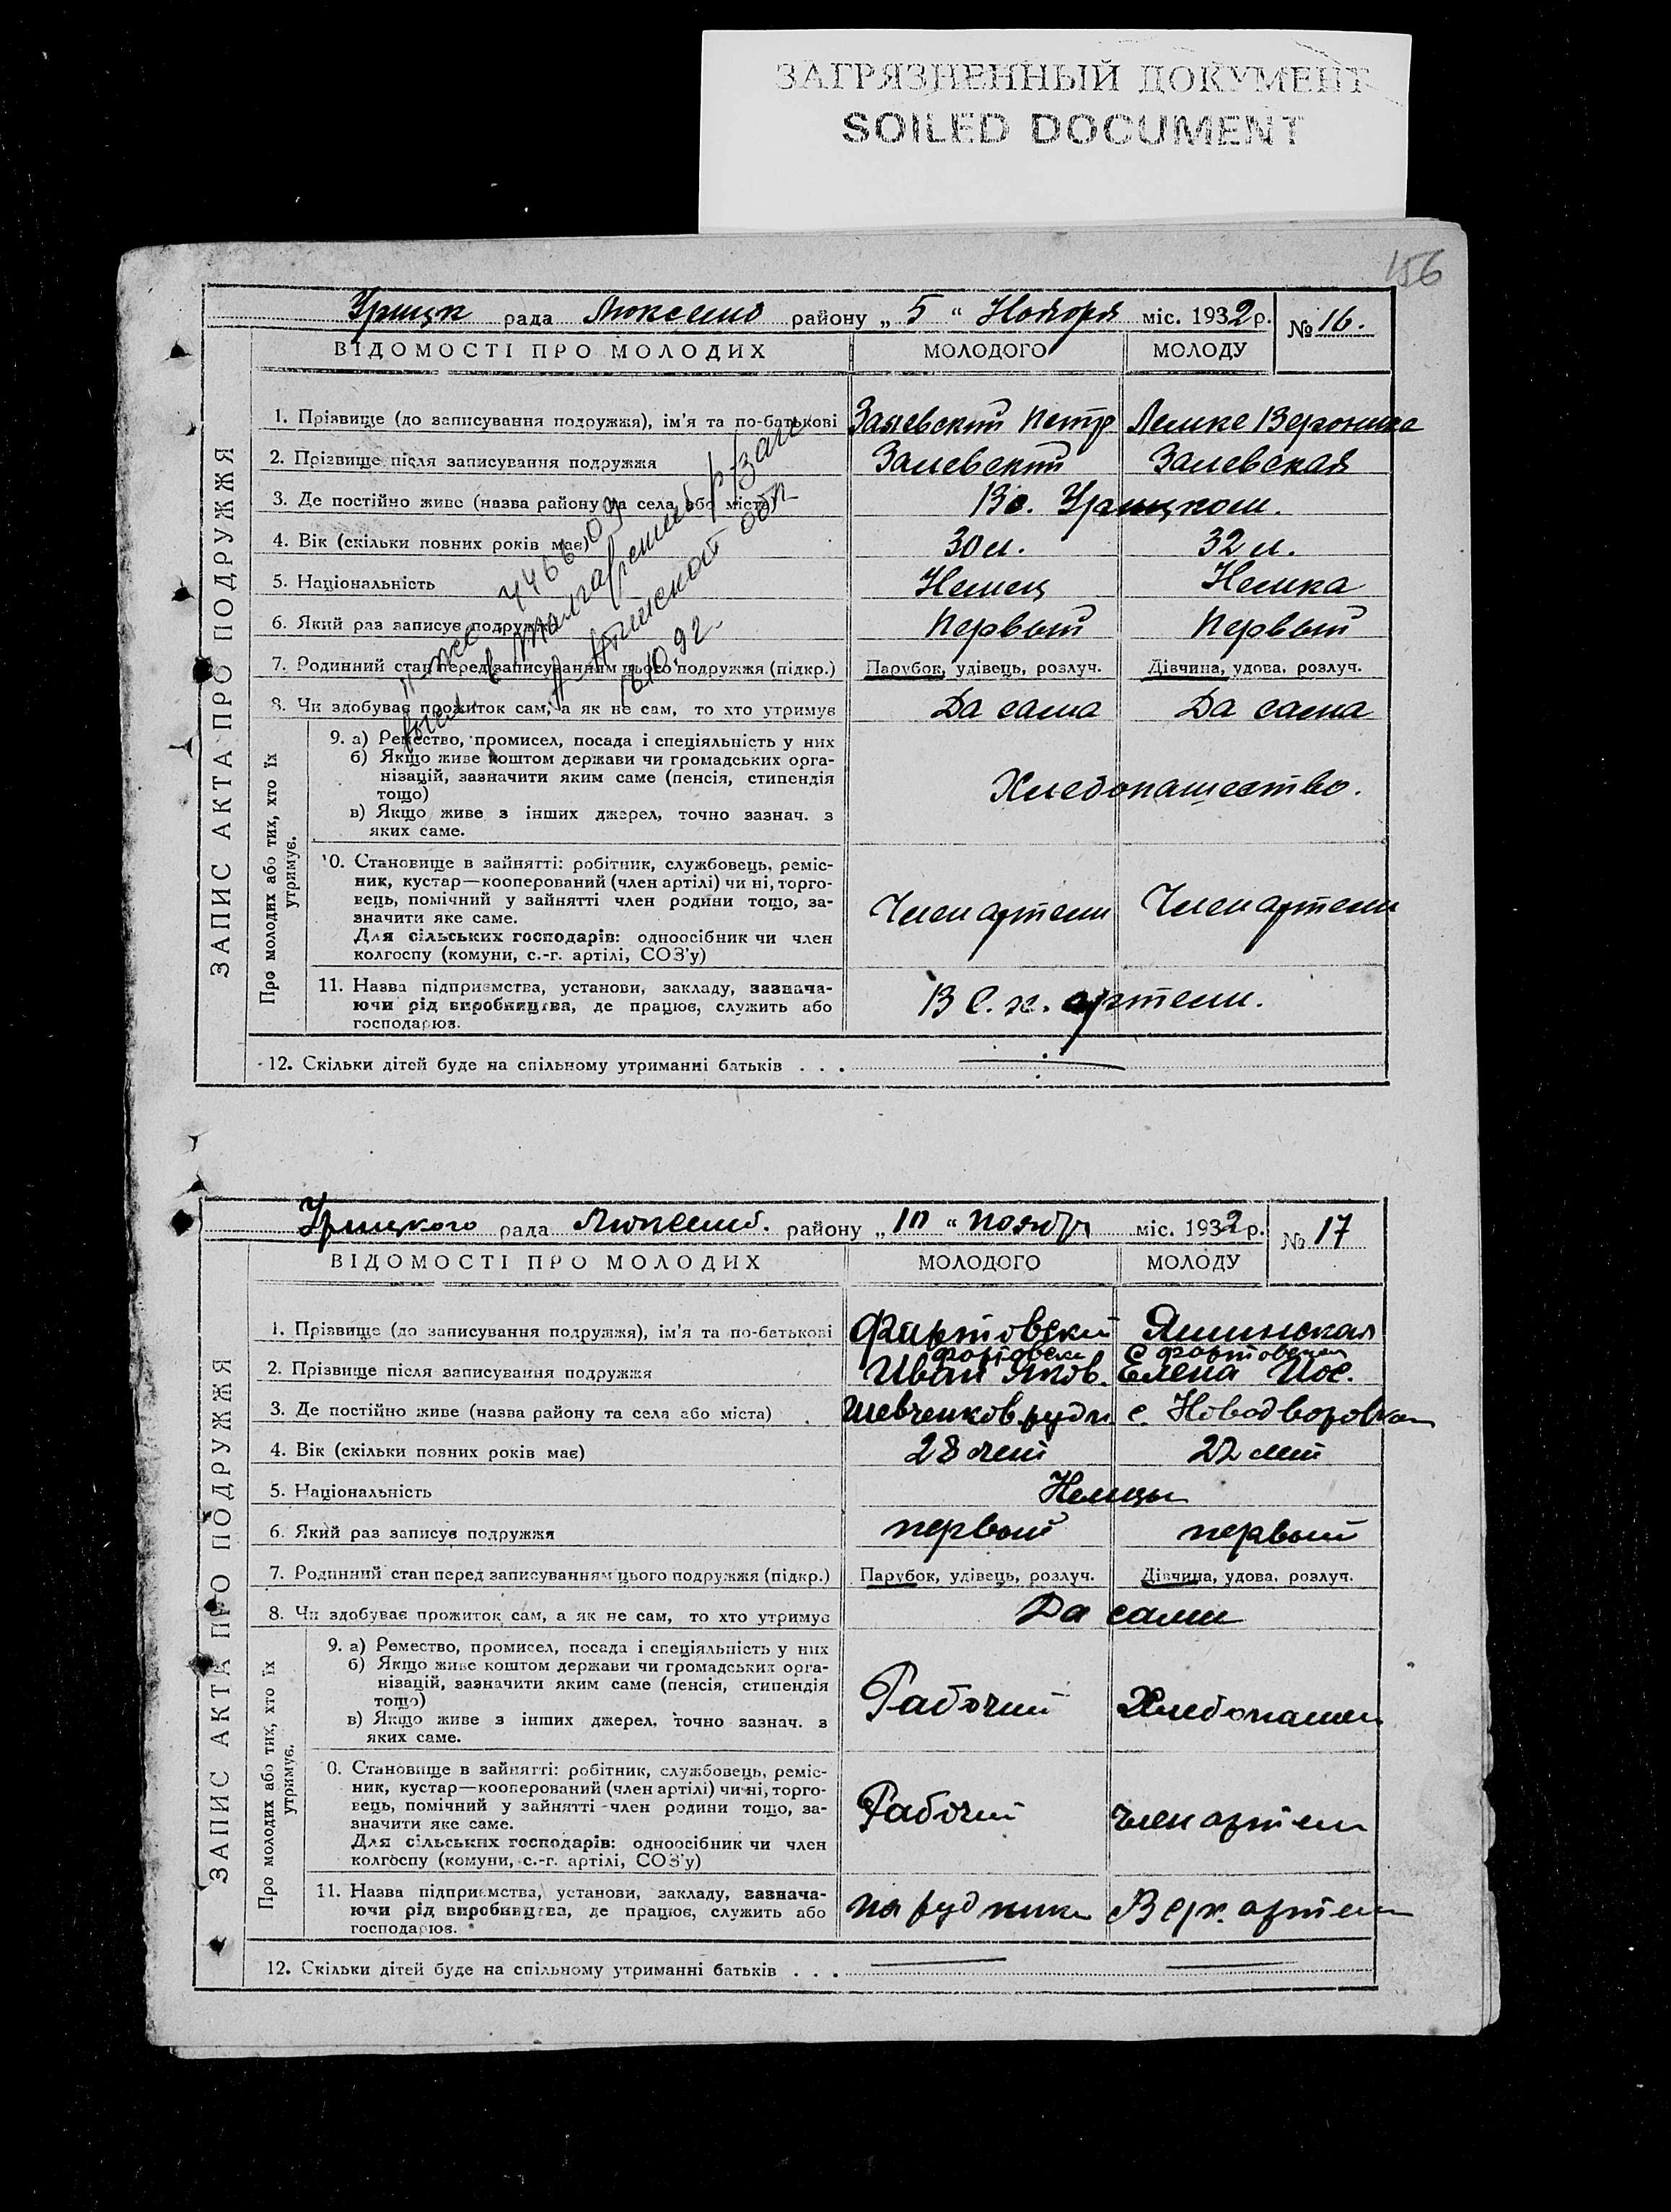 ЗАГРЯЗНЕННЫЙ ДОКУМЕНТ
SOILED DOCUMENT
156
Урицк рада Люксемб району „ 5 “ Ноября міс. 1932 р. № 16.
ВІДОМОСТІ ПРО МОЛОДИХ МОЛОДОГО МОЛОДУ
ЗАПИС АКТА ПРО ПОДРУЖЖЯ
1. Прізвище (до записування подружжя), ім'я та по-батькові Залевский Петр Лемке Вероника
2. Прізвище після записування подружжя Залевский Залевская
3. Де постійно живе (назва району та села або міста) В с. Урицком.
4. Вік (скільки повних років має) 30 л. 32 л.
5. Національність Немец Немка
6. Який раз записує подружжя Первый Первый
7. Родинний стан перед записуванням цього подружжя (підкр.) Парубок, удівець, розлуч. Дівчина, удова, розлуч.
8. Чи здобуває прожиток сам, а як не сам, то хто утримує Да сама Да сама
Про молодих або тих, хто їх утримує.
9. а) Ремество, промисел, посада і спеціяльність у них
б) Якщо живе коштом держави чи громадських орга-
нізацій, зазначити яким саме (пенсія, стипендія
тощо)
в) Якщо живе з інших джерел, точно зазнач. з
яких саме.
Хлебопашество.
10. Становище в зайнятті: робітник, службовець, реміс-
ник, кустар—кооперований (член артілі) чи ні, торго-
вець, помічний у зайнятті член родини тощо, за-
значити яке саме.
Для сільських господарів: одноосібник чи член
колгоспу (комуни, с.-г. артілі, СОЗ'у)
Член артели Член артели
11. Назва підприємства, установи, закладу, зазнача-
ючи рід виробництва, де працює, служить або
господарює.
В с. х. артели.
12. Скільки дітей буде на спільному утриманні батьків . . .
446609
обл
10.92.
Урицкого рада Люксемб. району „ 10 “ ноября міс. 1932 р. № 17
ВІДОМОСТІ ПРО МОЛОДИХ МОЛОДОГО МОЛОДУ
ЗАПИС АКТА ПРО ПОДРУЖЖЯ
1. Прізвище (до записування подружжя), ім'я та по-батькові Фартовский Яшинская
Фортовски Фортовская
2. Прізвище після записування подружжя Иван Яков. Елена Иос.
3. Де постійно живе (назва району та села або міста) Шевченков рудн с. Новодворовка
4. Вік (скільки повних років має) 28 лет 22 лет
5. Національність Немцы
6. Який раз записує подружжя первый первый
7. Родинний стан перед записуванням цього подружжя (підкр.) Парубок, удівець, розлуч. Дівчина, удова, розлуч.
8. Чи здобуває прожиток сам, а як не сам, то хто утримує Да сами
Про молодих або тих, хто їх утримує.
9. а) Ремество, промисел, посада і спеціяльність у них
б) Якщо живе коштом держави чи громадських орга-
нізацій, зазначити яким саме (пенсія, стипендія
тощо)
в) Якщо живе з інших джерел, точно зазнач. з
яких саме.
Рабочий Хлебопашец
0. Становище в зайнятті: робітник, службовець, реміс-
ник, кустар—кооперований (член артілі) чи ні, торго-
вець, помічний у зайнятті член родини тощо, за-
значити яке саме.
Для сільських господарів: одноосібник чи член
колгоспу (комуни, с.-г. артілі, СОЗ'у)
Рабочий член артели
11. Назва підприємства, установи, закладу, зазнача-
ючи рід виробництва, де працює, служить або
господарює.
на руднике В с/х. артели
12. Скільки дітей буде на спільному утриманні батьків . . .